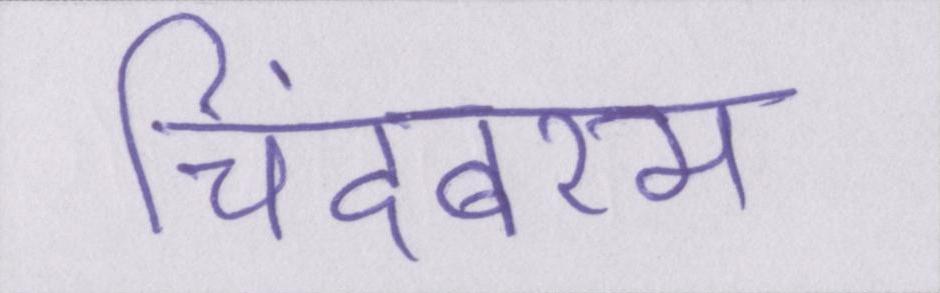 चिंदबरम